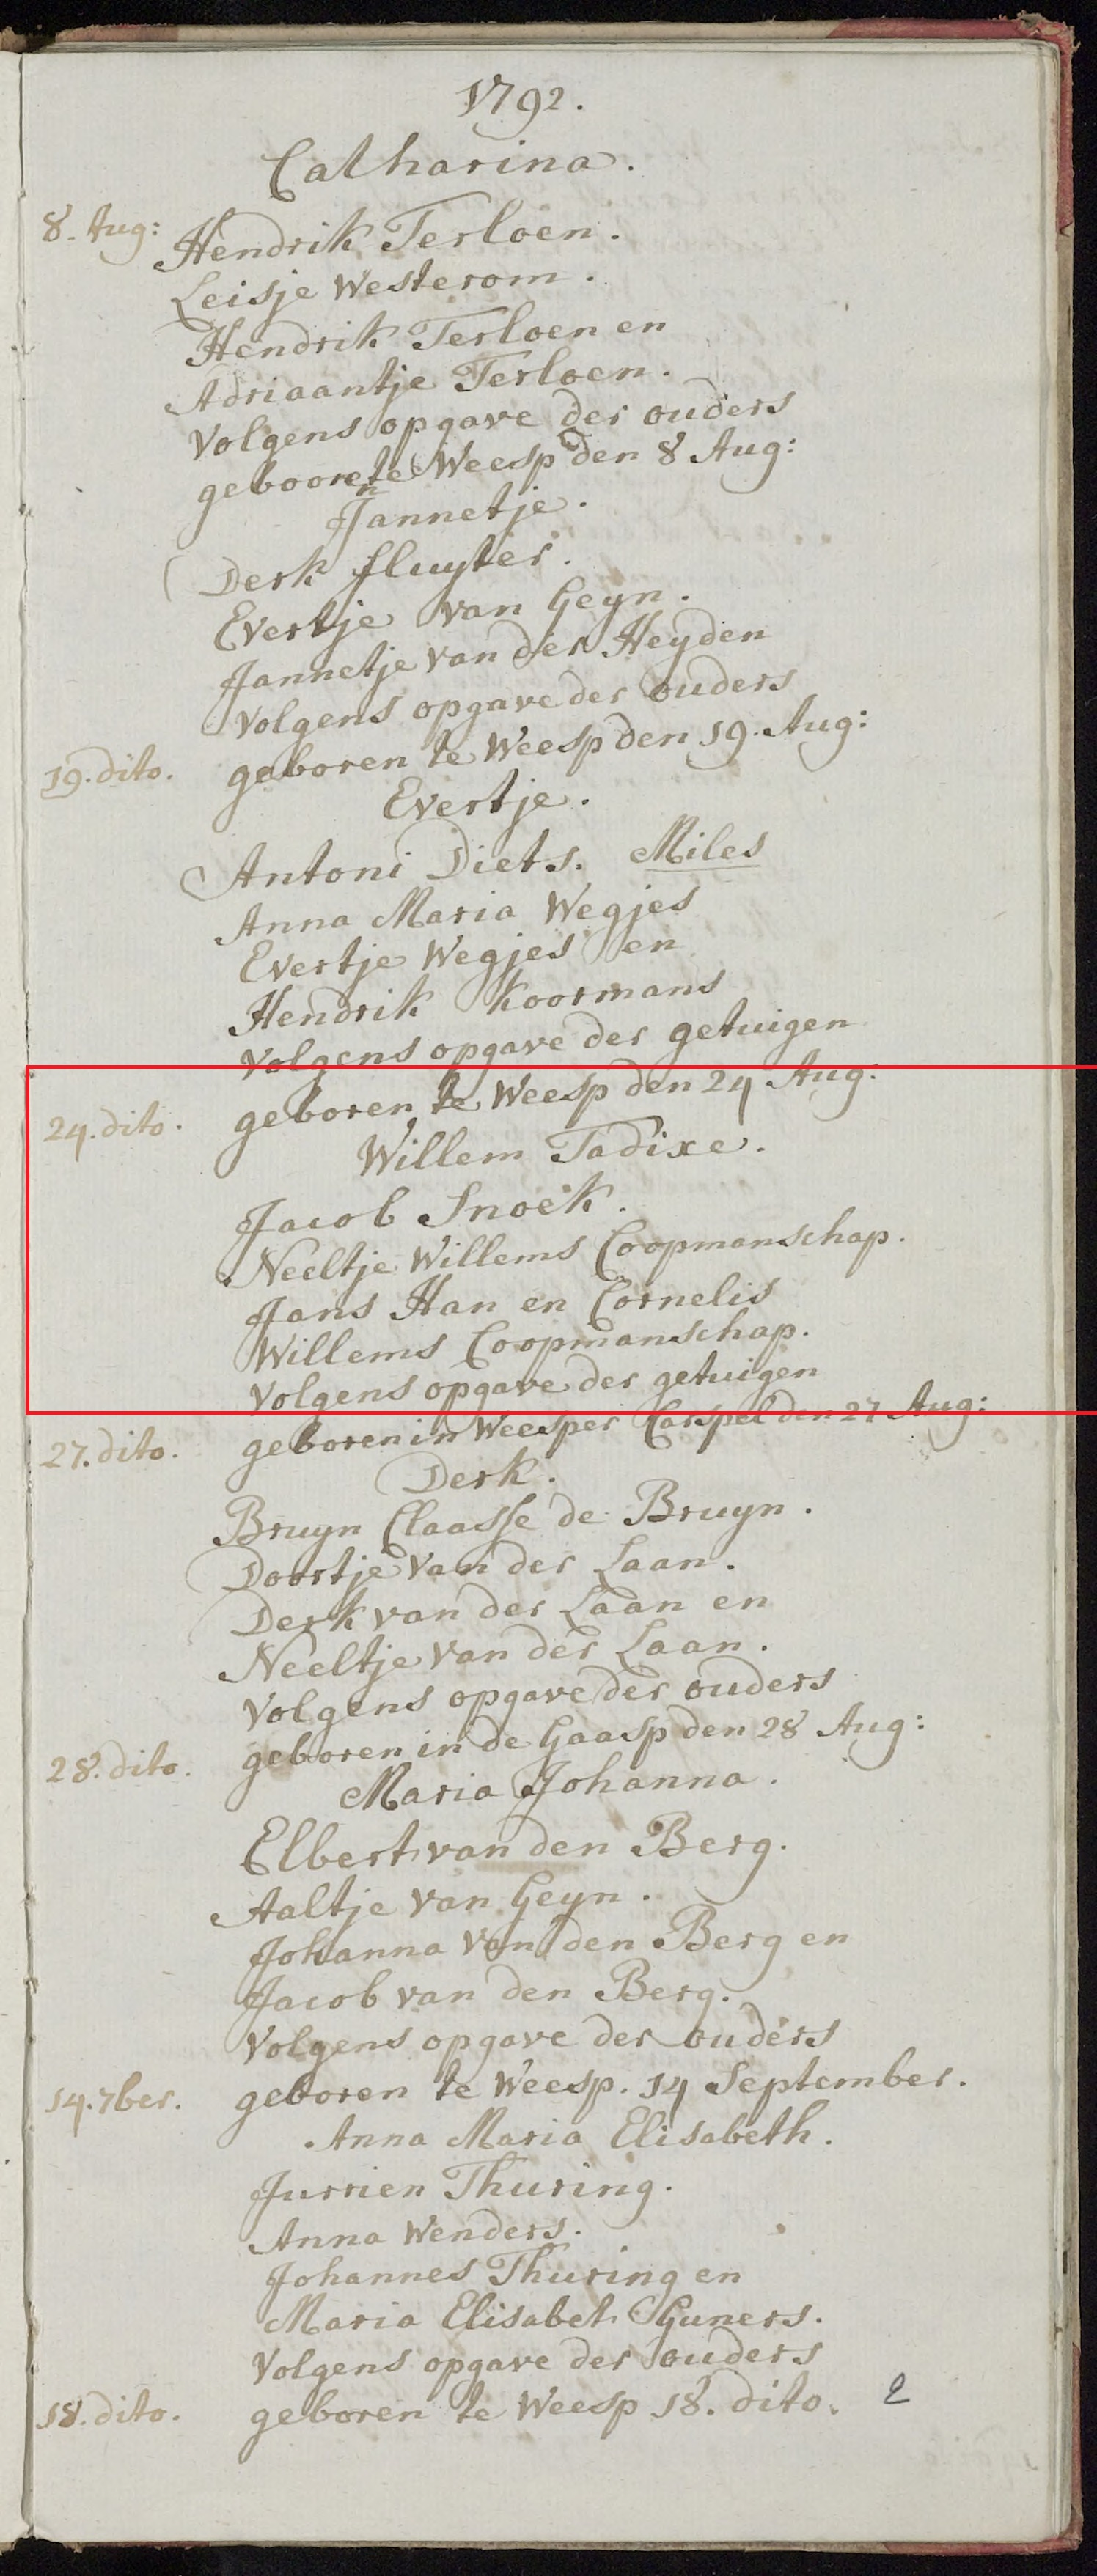 1792.
Catharina.
8. Aug: Hendrik Terloen.
Leisje Westerom.
Hendrik Terloen en
Adriaantje Terloen.
Volgens opgave der ouders
geboore te Weesp den 8 Aug:
n
Jannetje.
Derk fluyter.
Evertje van Geyn.
Jannetje van der Heyden
Volgens opgave der ouders
19. dito. geboren te Weesp den 19. Aug:
Evertje.
Antoni Diets. Miles
Anna Maria Wegjes
Evertje Wegjes en
Hendrik Koormans
Volgens opgave der getuigen
24. dito. geboren te Weesp den 24 Aug:
Willem Tadixe.
Jacob Snoek.
Neeltje Willems Coopmanschap.
Jans Han en Cornelis
Willems Coopmanschap.
Volgens opgave der getuigen
27. dito. geboren in Weesper Carspel den 27 Aug:
Derk.
Bruyn Claasse de Bruyn.
Doortje van der Laan.
Derk van der Laan en
Neeltje van der Laan.
Volgens opgave der ouders
28. dito. geboren in de Gaasp den 28 Aug:
Maria Johanna.
Elbert van den Berg.
Aaltje van Geyn.
Johanna van den Berg en
Jacob van den Berg.
Volgens opgave der ouders
14. 7ber. geboren te Weesp. 14 September.
Anna Maria Elisabeth.
Jurrien Thuring.
Anna Wenders.
Johannes Thuring en
Maria Elisabet Guners.
Volgens opgave der ouders
18. dito. geboren te Weesp 18. dito. 2